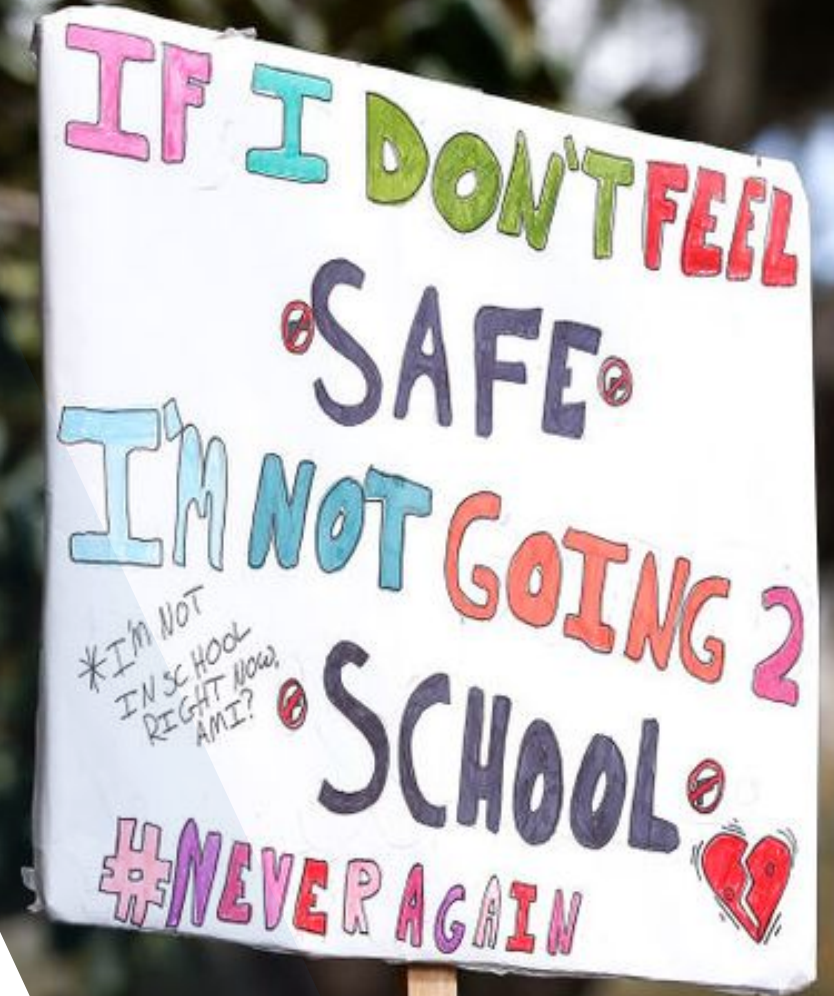 IF I DON'T FEEL
SAFE
I'M NOT GOING 2
*I'M NOT
IN SCHOOL
RIGHT NOW,
AM I?
SCHOOL
#NEVER AGAIN